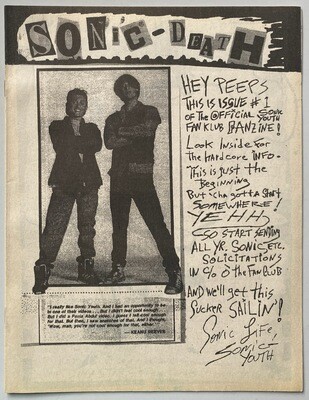 SONiC-DEATH
HEY PEEPS
THIS IS ISSUE # 1
OF THE OFFICIAL SONIC YOUTH
FAN KLUB FANZINE!
Look Inside for
the hardcore info.
This is just the
Beginning
But 'cha gotta start
SOMEWHERE!
YEHH,
SO START SENDING
ALL YR. SONIC, ETC.
SOLICITATIONS
IN C/O O'THE FAN CLUB
AND WE'LL get this
SUCKER SAILIN'!
Sonic Life,
SONIC
YOUTH
"I really like Sonic Youth. And I had an opportunity to be
in one of their videos . . . . But I didn't feel cool enough . .
But I did a Paula Abdul video. I guess I felt cool enough
for that. But then, I saw snatches of that. And I thought,
'Wow, man, you're not cool enough for that, either.'"
— KEANU REEVES